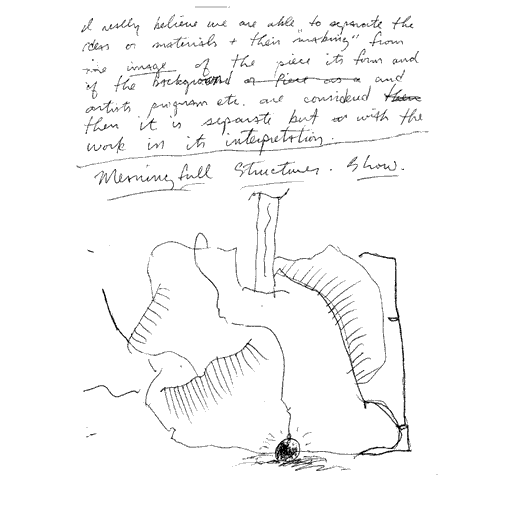 I really believe we are able to separate the
idea or materials + their "making" from
the image of the piece its form and
if the background or piece as a and
artists program etc. are considered then
then it is separate but or with the
work in its interpretation.
Meaningfull Structures. Show.